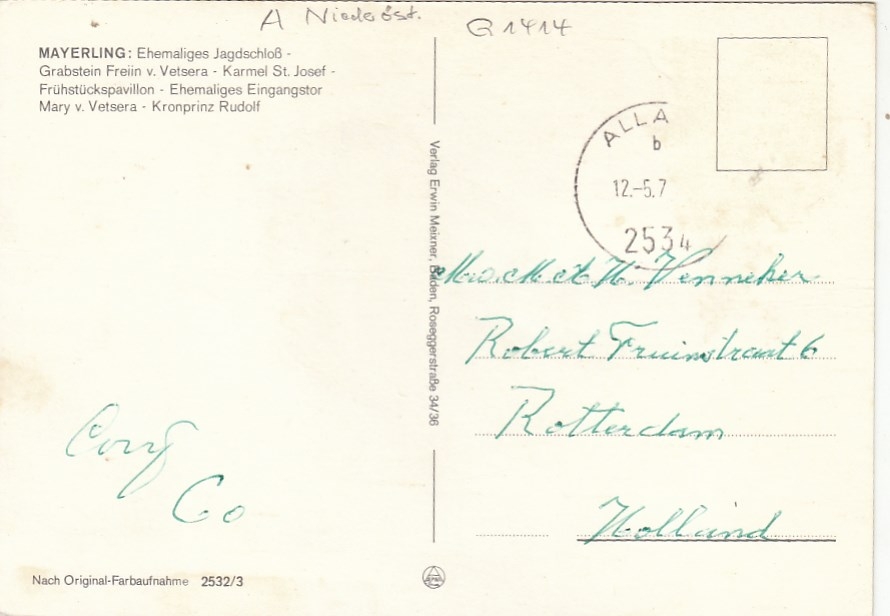 A Niederöst.
G 1414
MAYERLING: Ehemaliges Jagdschloß -
Grabstein Freiin v. Vetsera - Karmel St. Josef -
Frühstückspavillon - Ehemaliges Eingangstor
Mary v. Vetsera - Kronprinz Rudolf
Verlag Erwin Meixner, Baden, Roseggerstraße 34/36
ALLA
b
12.-5.7
2534
H. Venneker
Robert Fruinstraat 6
Rotterdam
Holland
Co
Nach Original-Farbaufnahme 2532/3